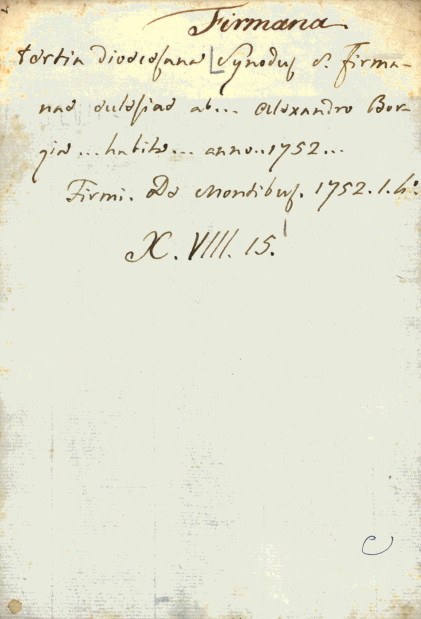 Firmana
tertia dioecesana Synodus S. firma-
nae eclesiae ab... Alexandro Bor-
gia... habita... anno..1752...
Firmi. De Montibus. 1752. 1. 4.º
X. VIII. 15.